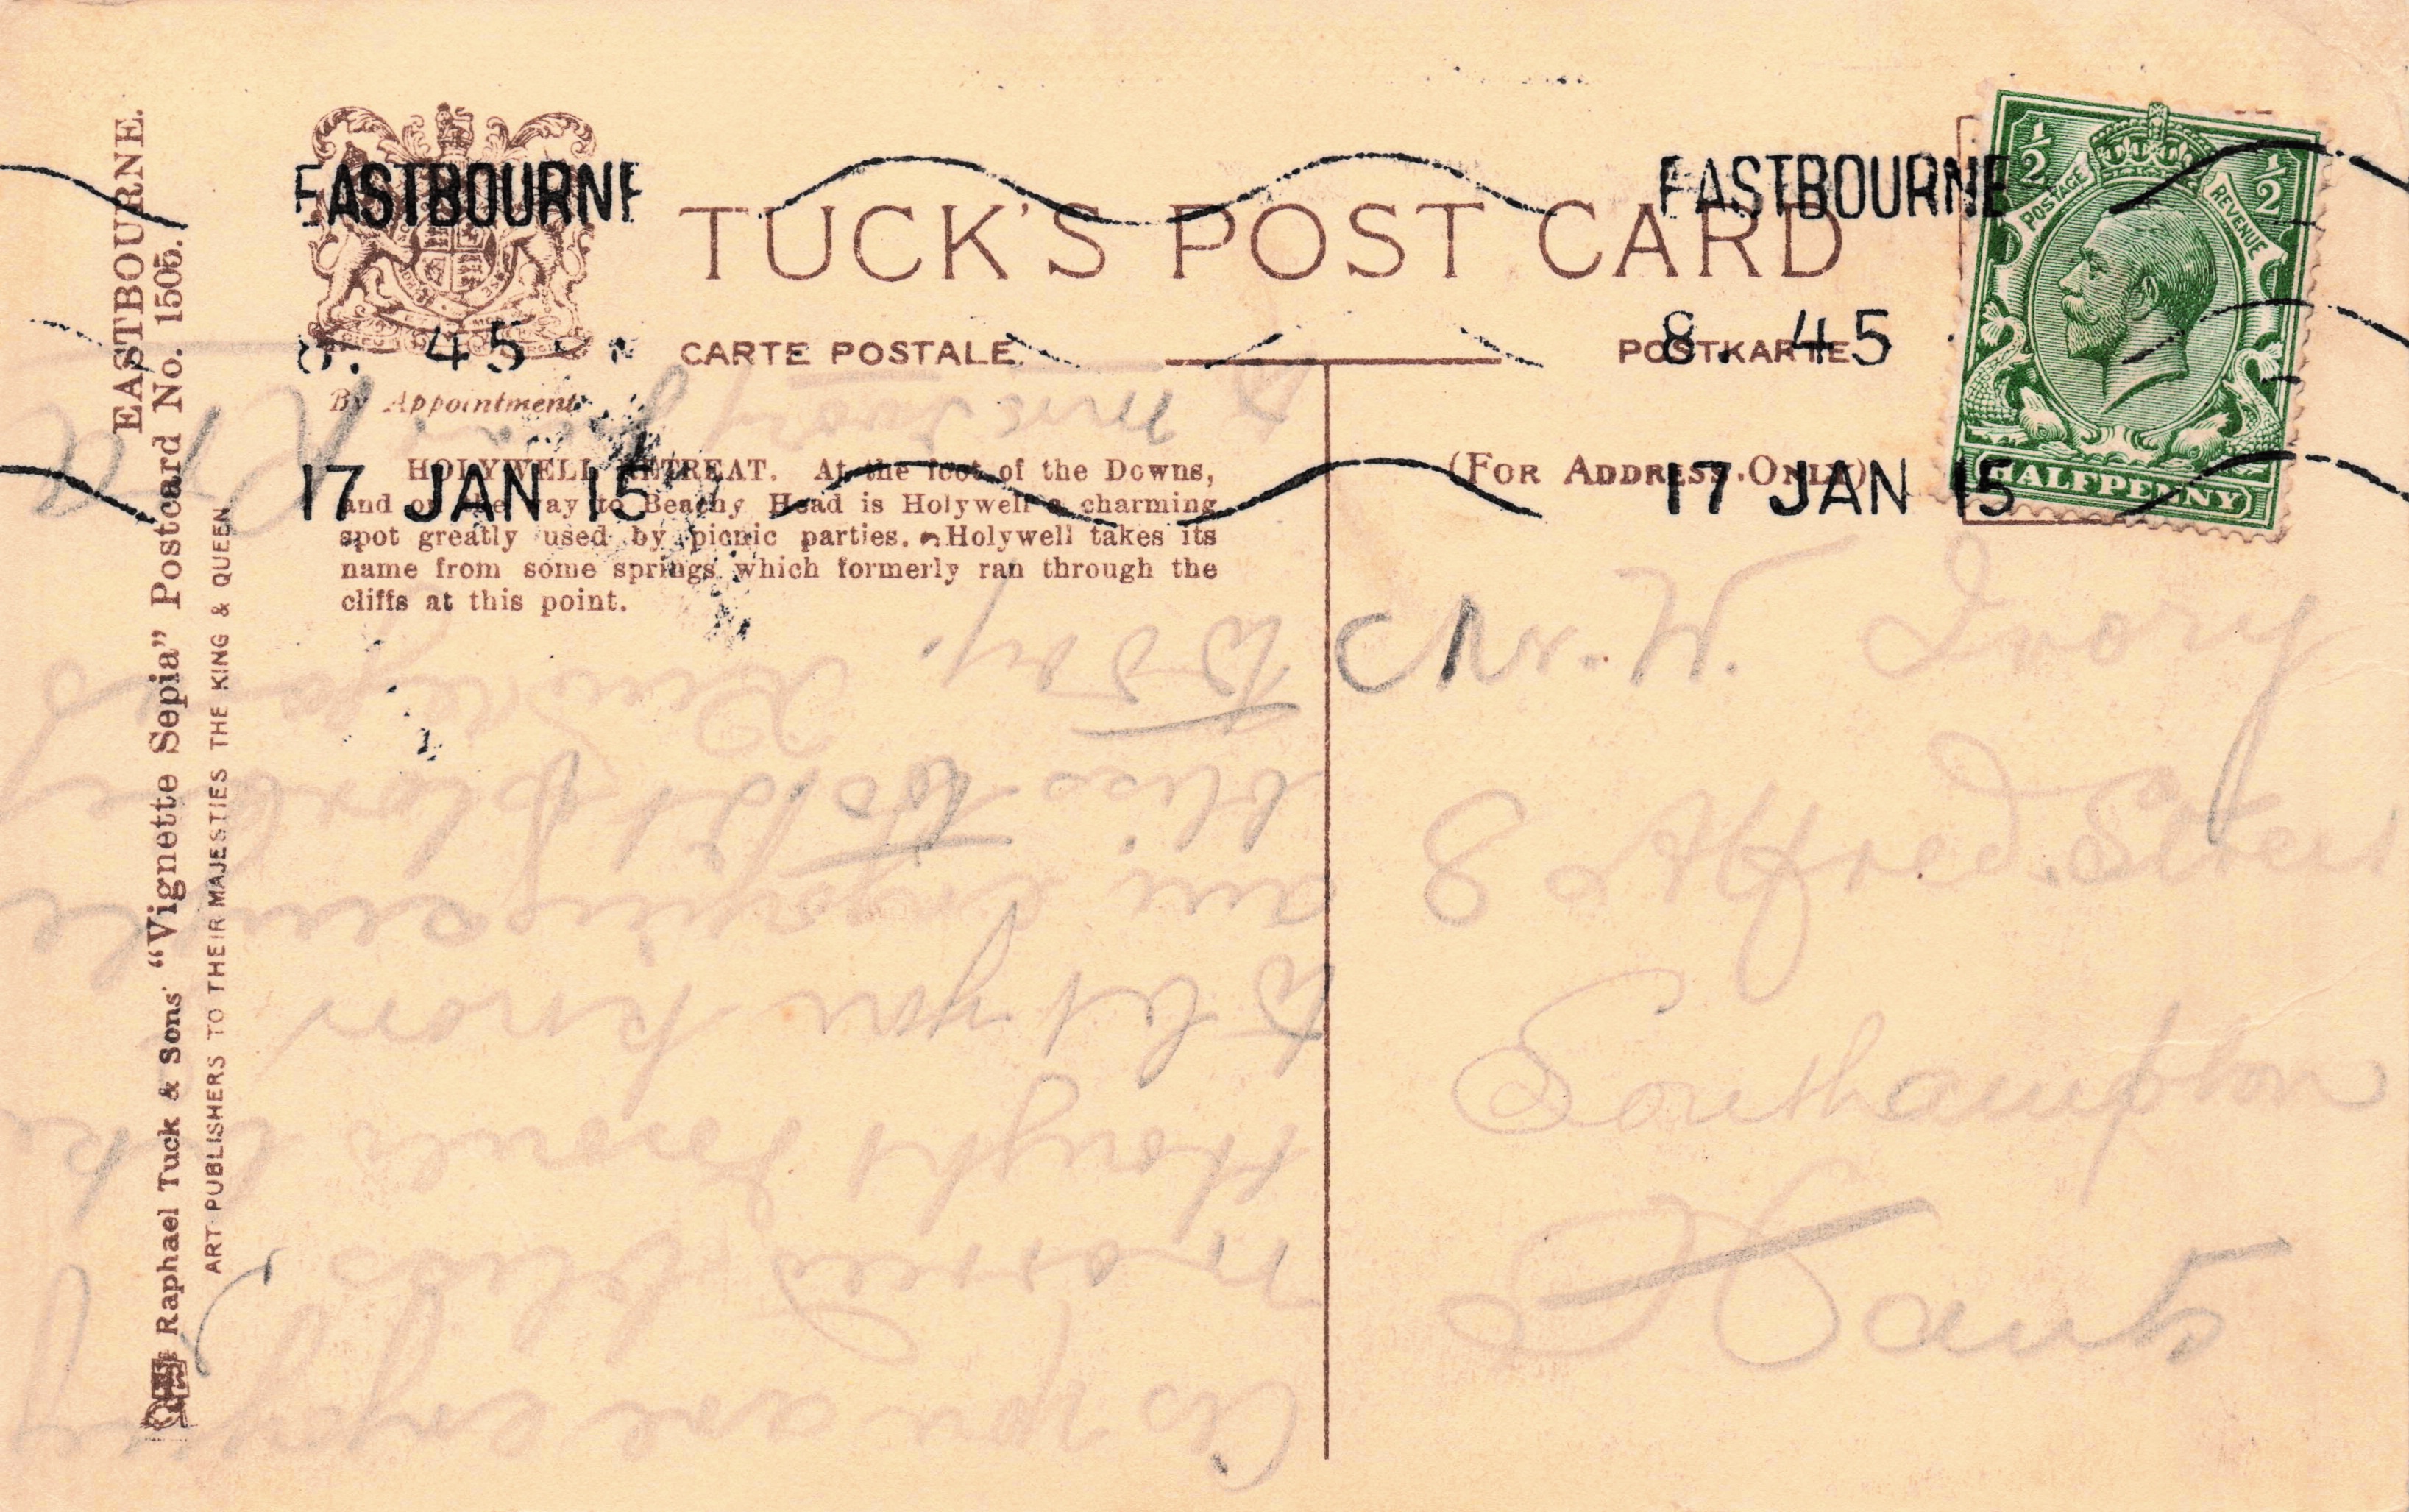 EASTBOURNE.
Raphael Tuck & Sons' "Vignette Sepia" Postcard No. 1505.
ART PUBLISHERS TO THEIR MAJESTIES THE KING & QUEEN
TUCK'S POST CARD
CARTE POSTALE
POSTKARTE
By Appointment
(FOR ADDRESS ONLY)
EASTBOURNE
8. 45
17 JAN 15
EASTBOURNE
8. 45
17 JAN 15
½ ½
POSTAGE REVENUE
HALFPENNY
HOLYWELL RETREAT. At the foot of the Downs,
and on the way to Beachy Head is Holywell a charming
spot greatly used by picnic parties. Holywell takes its
name from some springs which formerly ran through the
cliffs at this point.
Mr. W. Ivory
8 Alfred Street
Southampton
Hants
As you are enjoying
married bliss
thought I would like
to let you know
am enjoying
bliss
today.
to Mrs Ivory